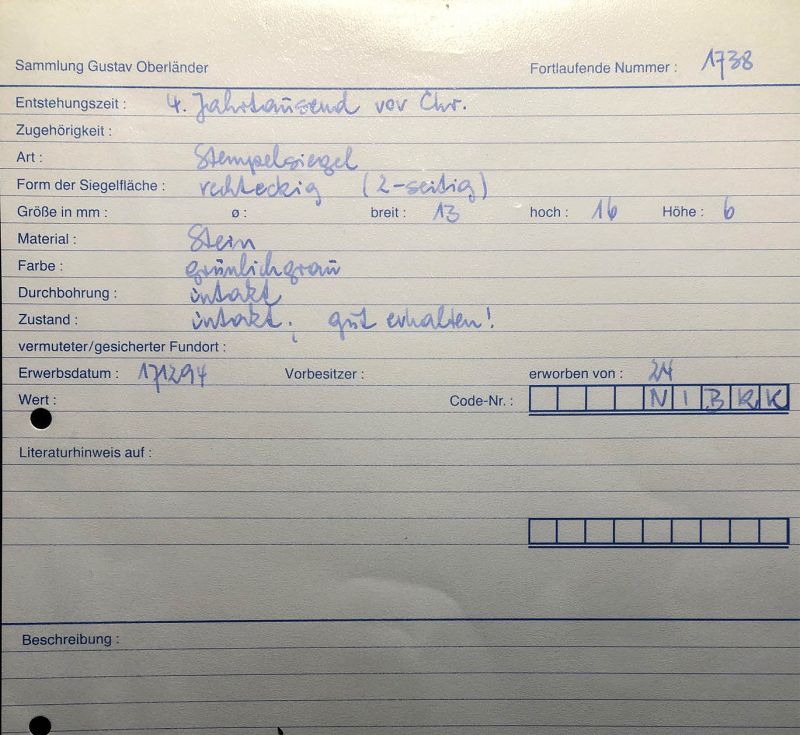 Sammlung Gustav Oberländer Fortlaufende Nummer : 1738
Entstehungszeit : 4. Jahrtausend vor Chr.
Zugehörigkeit :
Art : Stempelsiegel
Form der Siegelfläche : rechteckig (2-seitig)
Größe in mm : ø : breit : 13 hoch : 16 Höhe : 6
Material : Stein
Farbe : grünlichgrau
Durchbohrung : intakt
Zustand : intakt; gut erhalten!
vermuteter/gesicherter Fundort :
Erwerbsdatum : 171294 Vorbesitzer : erworben von : 24
Wert : Code-Nr. : N I B K K
Literaturhinweis auf :
Beschreibung :